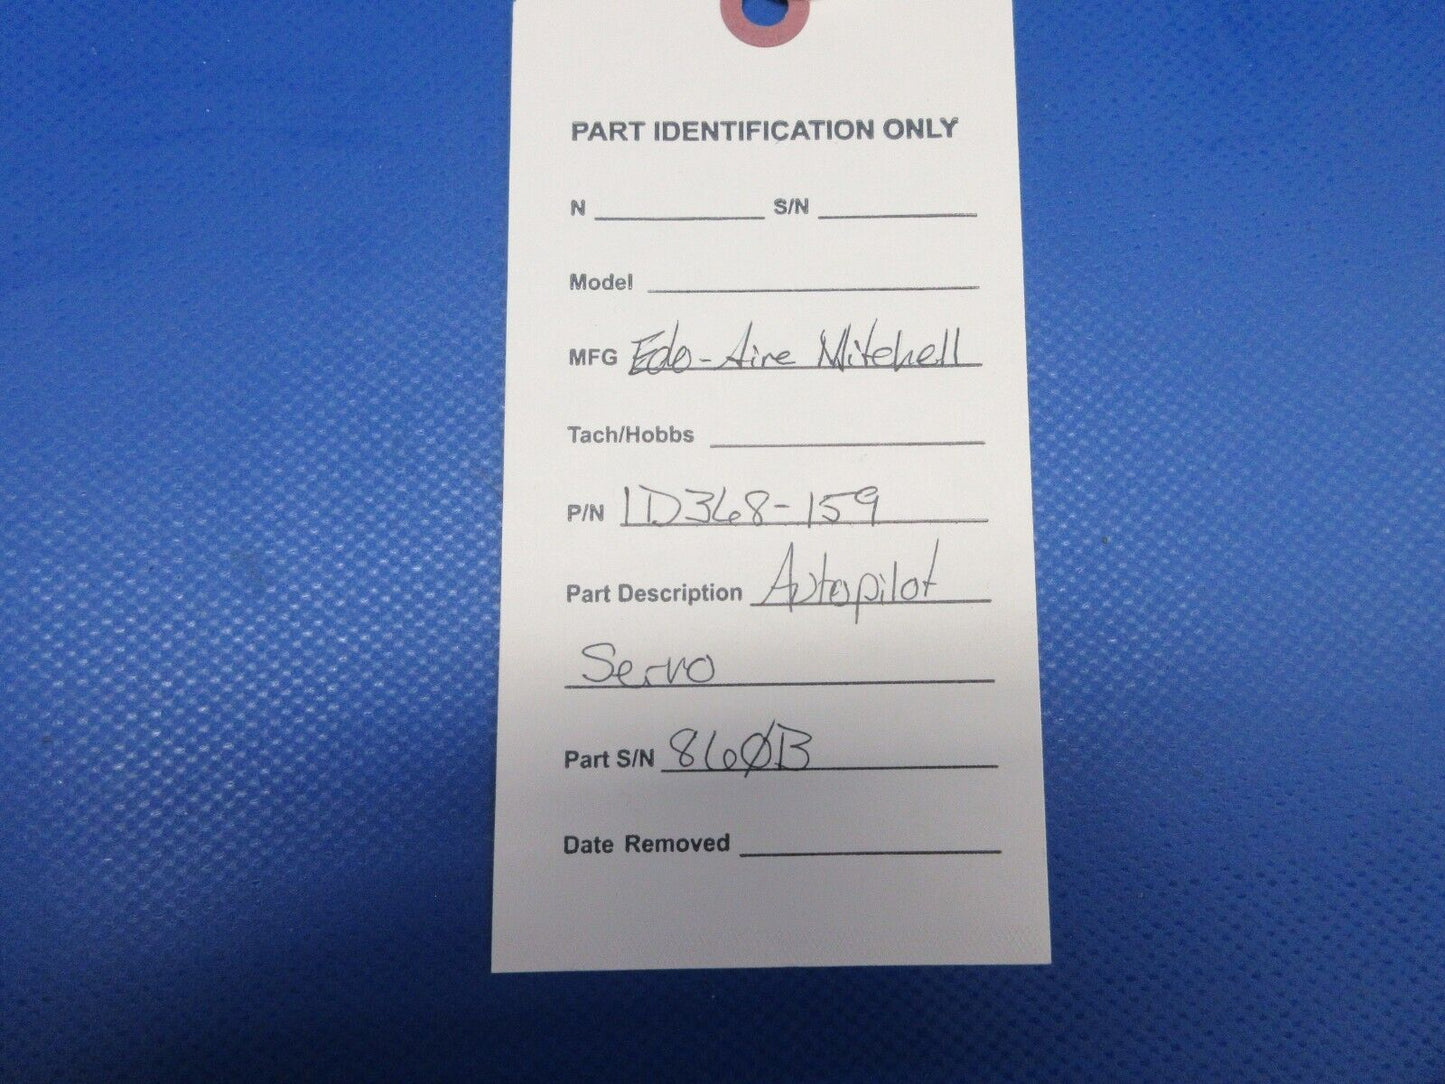 PART IDENTIFICATION ONLY
N ____________ S/N ____________
Model ________________________
MFG Edo-Aire Mitchell
Tach/Hobbs ____________________
P/N 1D368-159
Part Description Autopilot
Servo
Part S/N 860B
Date Removed ____________________